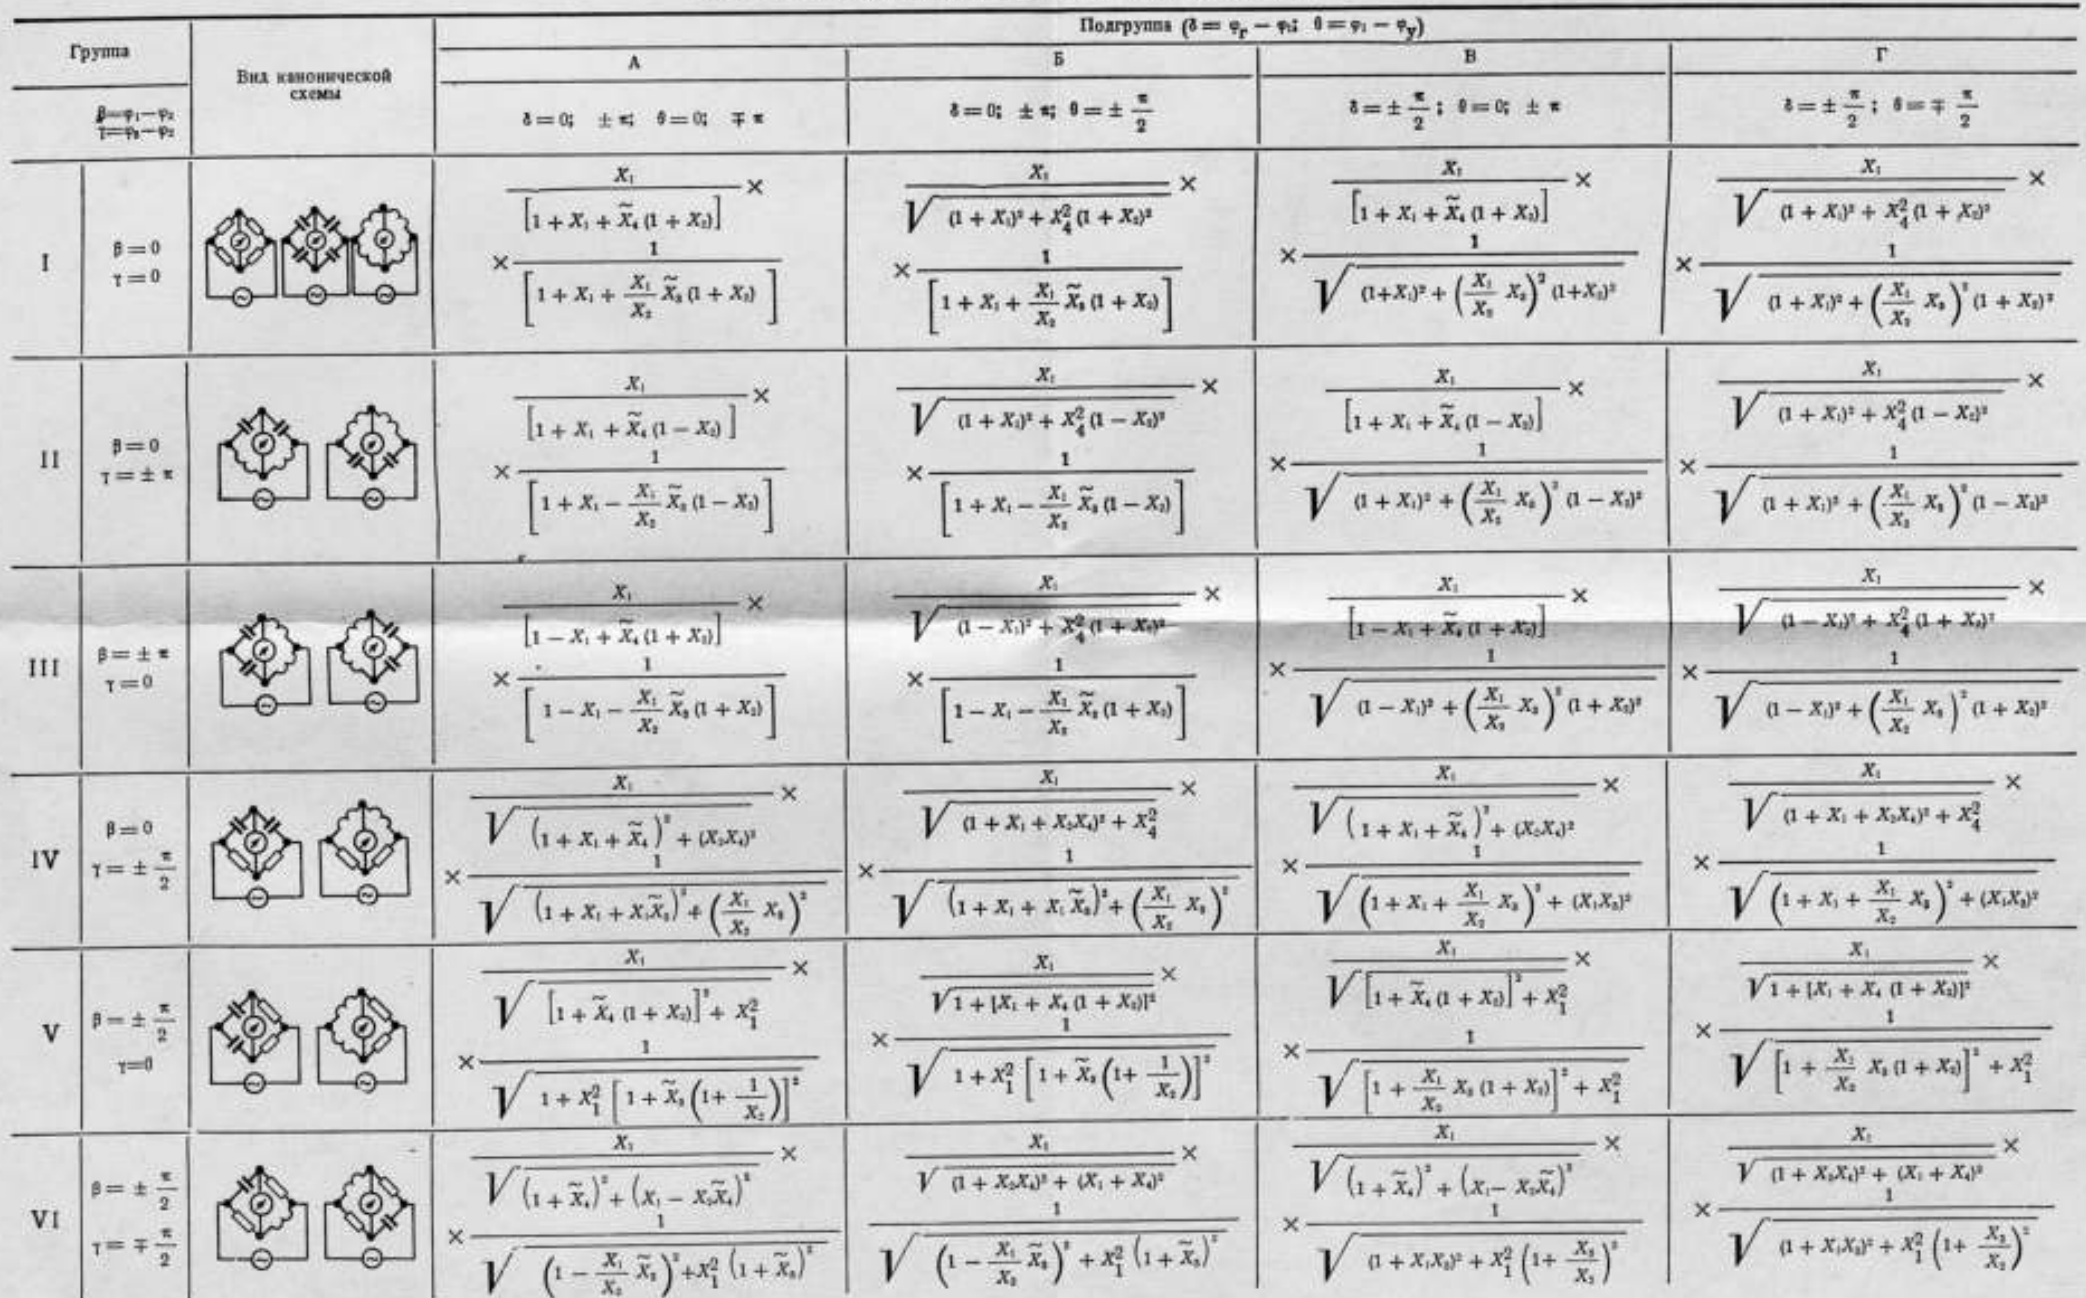 Подгруппа (δ = φ_г − φ₁; θ = φ₁ − φ_у)
Группа
Вид канонической схемы
А
Б
В
Г
β=φ₁−φ₂
γ=φ₃−φ₂
δ = 0; ± π; θ = 0; ∓ π
δ = 0; ± π; θ = ± π/2
δ = ± π/2; θ = 0; ± π
δ = ± π/2; θ = ∓ π/2
I
β = 0
γ = 0
X₁/[1 + X₁ + X̃₄ (1 + X₂)] ×
× 1/[1 + X₁ + (X₁/X₂) X̃₃ (1 + X₂)]
X₁/√((1 + X₁)² + X₄² (1 + X₂)²) ×
× 1/[1 + X₁ + (X₁/X₂) X̃₃ (1 + X₂)]
X₁/[1 + X₁ + X̃₄ (1 + X₂)] ×
× 1/√((1+X₁)² + ((X₁/X₂) X₃)² (1+X₂)²)
X₁/√((1 + X₁)² + X₄² (1 + X₂)²) ×
× 1/√((1 + X₁)² + ((X₁/X₂) X₃)² (1 + X₂)²)
II
β = 0
γ = ± π
X₁/[1 + X₁ + X̃₄ (1 − X₂)] ×
× 1/[1 + X₁ − (X₁/X₂) X̃₃ (1 − X₂)]
X₁/√((1 + X₁)² + X₄² (1 − X₂)²) ×
× 1/[1 + X₁ − (X₁/X₂) X̃₃ (1 − X₂)]
X₁/[1 + X₁ + X̃₄ (1 − X₂)] ×
× 1/√((1 + X₁)² + ((X₁/X₂) X₃)² (1 − X₂)²)
X₁/√((1 + X₁)² + X₄² (1 − X₂)²) ×
× 1/√((1 + X₁)² + ((X₁/X₂) X₃)² (1 − X₂)²)
III
β = ± π
γ = 0
X₁/[1 − X₁ + X̃₄ (1 + X₂)] ×
× 1/[1 − X₁ − (X₁/X₂) X̃₃ (1 + X₂)]
X₁/√((1 − X₁)² + X₄² (1 + X₂)²) ×
× 1/[1 − X₁ − (X₁/X₂) X̃₃ (1 + X₂)]
X₁/[1 − X₁ + X̃₄ (1 + X₂)] ×
× 1/√((1 − X₁)² + ((X₁/X₂) X₃)² (1 + X₂)²)
X₁/√((1 − X₁)² + X₄² (1 + X₂)²) ×
× 1/√((1 − X₁)² + ((X₁/X₂) X₃)² (1 + X₂)²)
IV
β = 0
γ = ± π/2
X₁/√((1 + X₁ + X̃₄)² + (X₂X₄)²) ×
× 1/√((1 + X₁ + X₁X̃₃)² + ((X₁/X₂) X₃)²)
X₁/√((1 + X₁ + X₂X₄)² + X₄²) ×
× 1/√((1 + X₁ + X₁ X̃₃)² + ((X₁/X₂) X₃)²)
X₁/√((1 + X₁ + X̃₄)² + (X₂X₄)²) ×
× 1/√((1 + X₁ + (X₁/X₂) X₃)² + (X₁X₃)²)
X₁/√((1 + X₁ + X₂X₄)² + X₄²) ×
× 1/√((1 + X₁ + (X₁/X₂) X₃)² + (X₁X₃)²)
V
β = ± π/2
γ=0
X₁/√([1 + X̃₄ (1 + X₂)]² + X₁²) ×
× 1/√(1 + X₁² [1 + X̃₃ (1+ 1/X₂)]²)
X₁/√(1 + [X₁ + X₄ (1 + X₂)]²) ×
× 1/√(1 + X₁² [1 + X̃₃ (1+ 1/X₂)]²)
X₁/√([1 + X̃₄ (1 + X₂)]² + X₁²) ×
× 1/√([1 + (X₁/X₂) X₃ (1 + X₂)]² + X₁²)
X₁/√(1 + [X₁ + X₄ (1 + X₂)]²) ×
× 1/√([1 + (X₁/X₂) X₃ (1 + X₂)]² + X₁²)
VI
β = ± π/2
γ = ∓ π/2
X₁/√((1 + X̃₄)² + (X₁ − X₂X̃₄)²) ×
× 1/√((1 − (X₁/X₂) X̃₃)² + X₁² (1 + X̃₃)²)
X₁/√((1 + X₂X₄)² + (X₁ + X₄)²) ×
1/√((1 − (X₁/X₂) X̃₃)² + X₁² (1 + X̃₃)²)
X₁/√((1 + X̃₄)² + (X₁ − X₂X̃₄)²) ×
× 1/√((1 + X₁X₃)² + X₁² (1 + X₃/X₂)²)
X₁/√((1 + X₂X₄)² + (X₁ + X₄)²) ×
× 1/√((1 + X₁X₃)² + X₁² (1+ X₃/X₂)²)